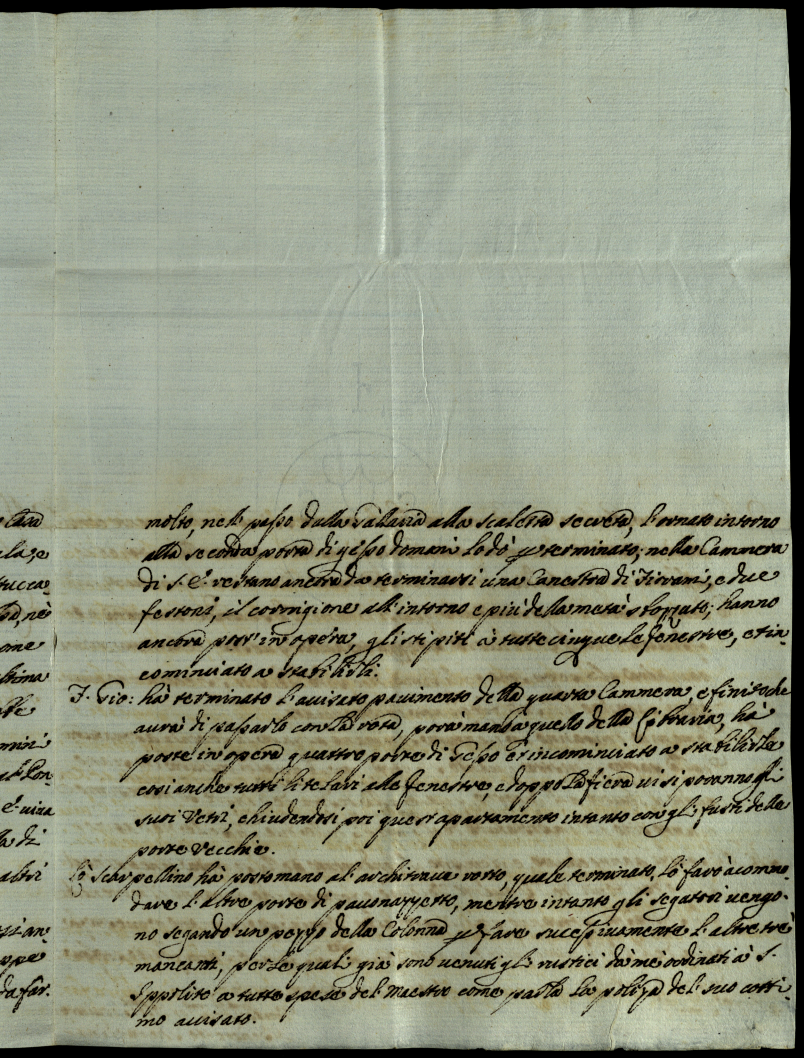 molto, nell passo dalla Gallaria alla scaletta secreta, l'ornato intorno
alla seconda porta di gesso domani lo dò per terminato; nella Cammera
di S. E. restano ancora da terminarsi una Canestra di Tirvani, e due
festoni, il cornigione all'intorno e più della metà sbozzato; hanno
ancora post'in opera, gli stipiti à tutte cinque le fenestre, e in-
cominciato a stabilirli.
F. Gio: hà terminato l'avisato pavimento della quarta Cammera, e finito che
aurà di passarlo con la rota, porà man à quello della Libraria, hà
poste in opera quattro porte di Gesso et incominciato a stabilirle
così anche tutti li telari alle fenestre, e doppo la fiera vi si poranno gli
suoi Vetri, chiudendosi poi quest'apartamento intanto con gli fusti delle
porte Vecchie.
Lo Scarpellino hà posto mano al architrave rotto, quale terminato, lo farò accomo-
dare l'altre porte di pavonazzetto, mentre intanto gli segatori vengo-
no segando un pezzo della Colonna per fare sucessivamente l'altre trè
mancanti, per le quali già sono venuti gli rustici da me ordinati à S.
Ippolito a tutte spese del Maestro come parla la poliza del suo cotti-
mo avisato.
cava
ala, e
tucca-
né
ome
ltima
mini
E. viva
la di
altri
da far.